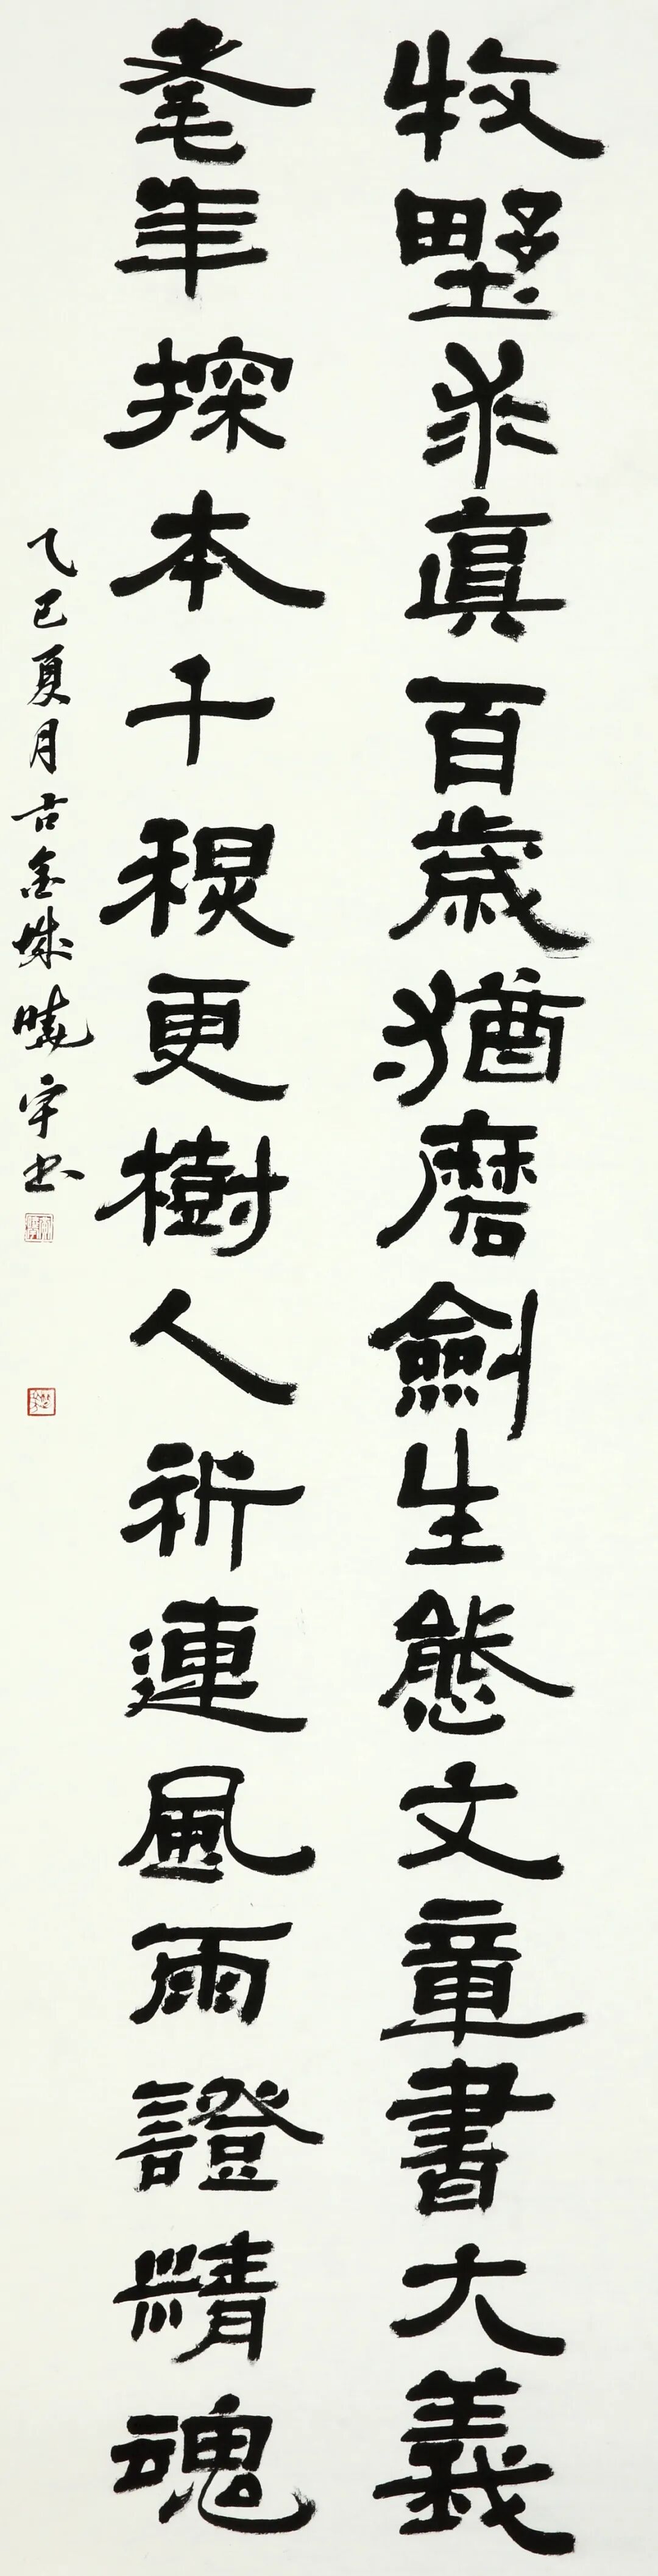 牧野求真百歲猶磨劍生態文章書大義
耄年探本千稘更樹人祈連風雨證精魂
乙巳夏月古金城曉宇书